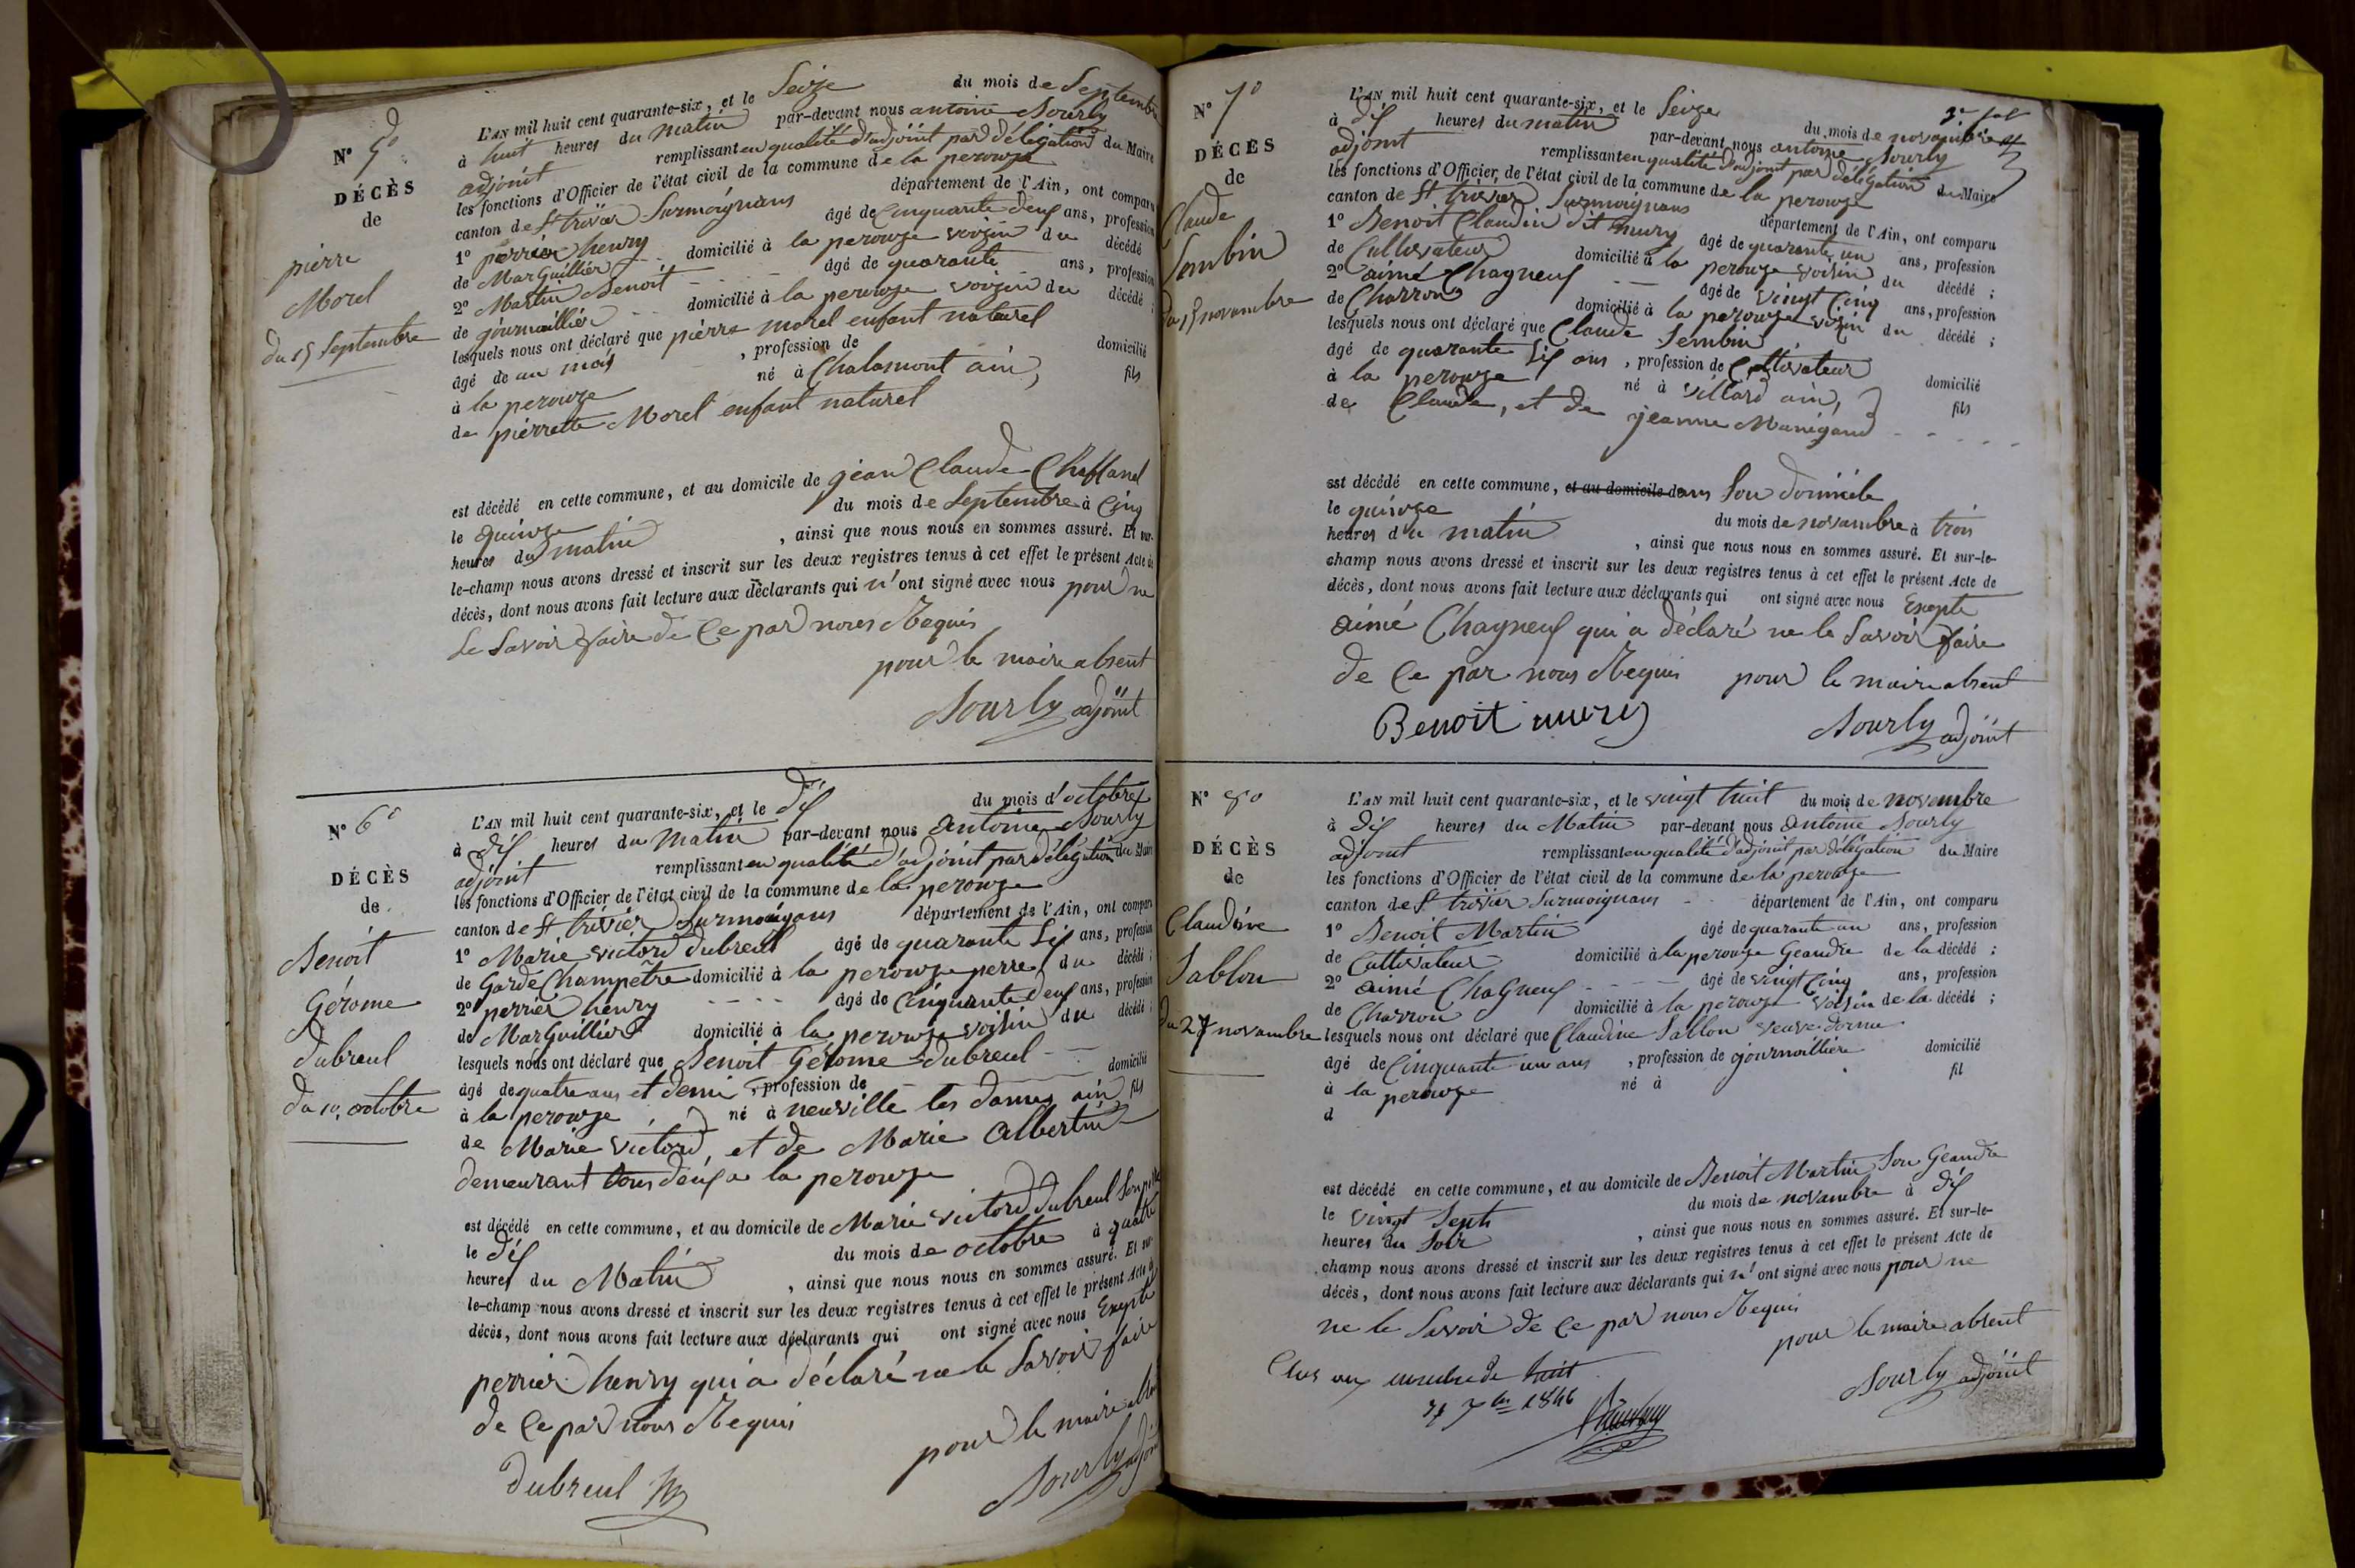 N° 5°
DÉCÈS
de
pierre
Morel
du 15 Septembre
L'AN mil huit cent quarante-six, et le Seize du mois de Septembre
à huit heures du matin par-devant nous antoine Sourly
adjoint remplissant en qualité d'adjoint par délégation du Maire
les fonctions d'Officier de l'état civil de la commune de la perouze
canton de St trivier Surmoignans département de l'Ain, ont comparu
1° perrier henry âgé de Cinquante deux ans, profession
de Marguillier domicilié à la perouze voizin du décédé
2° Martin Benoit âgé de quarante ans, profession
de journaillier domicilié à la perouze voizin du décédé ;
lesquels nous ont déclaré que pierre morel enfant naturel
âgé de un mois , profession de domicilié
à la perouze né à Chalamont ain, fils
de pierrette Morel enfant naturel
est décédé en cette commune, et au domicile de jean Claude
le quinze du mois de Septembre à Cinq
heures du matin , ainsi que nous nous en sommes assuré. Et sur-
le-champ nous avons dressé et inscrit sur les deux registres tenus à cet effet le présent Acte de
décès, dont nous avons fait lecture aux déclarants qui n'ont signé avec nous pour ne
Le Savoir faire de Ce par nous Requis
pour le maire absent
Sourly adjoint
N° 6°
DÉCÈS
de
Benoit
Gérome
dubreul
du 10 octobre
L'AN mil huit cent quarante-six, et le dix du mois d'octobre
à dix heures du Matin par-devant nous Antoine Sourly
adjoint remplissant en qualité d'adjoint par délégation du Maire
les fonctions d'Officier de l'état civil de la commune de la perouze
canton de St trivier Surmoignans département de l'Ain, ont comparu
1° Marie victord dubreul âgé de quarante Six ans, profession
de Garde Champêtre domicilié à la perouze perre du décédé ;
2° perrier henry âgé de Cinquante deux ans, profession
de Marguillier domicilié à la perouze voisin du décédé ;
lesquels nous ont déclaré que Benoit Gérome dubreul
âgé de quatre ans et demi , profession de domicilié
à la perouze né à neuville les dames ain fils
de Marie victord, et de Marie Albertin
demeurant tous deux a la perouze
est décédé en cette commune, et au domicile de Marie victord dubreul Son père
le dix du mois de octobre à quatre
heures du Matin , ainsi que nous nous en sommes assuré. Et sur-
le-champ nous avons dressé et inscrit sur les deux registres tenus à cet effet le présent Acte de
décès, dont nous avons fait lecture aux déclarants qui ont signé avec nous Exepté
perrier henry qui a déclaré ne le Savoir faire
de Ce par nous Requis
pour le maire absent
dubreul
Sourly adjoint
3e
N° 7°
DÉCÈS
de
Claude
Sembin
du 15 novembre
L'AN mil huit cent quarante-six, et le Seize du mois de novembre
à dix heures du matin par-devant nous antoine Sourly
adjoint remplissant en qualité d'adjoint par délégation du Maire
les fonctions d'Officier de l'état civil de la commune de la perouze
canton de St trivier Surmoignans département de l'Ain, ont comparu
1° Benoit Claudin dit mury âgé de quarante un ans, profession
de Cultivateur domicilié à la perouze voisin du décédé ;
2° aimé Chagneux âgé de vingt Cinq ans, profession
de Charron domicilié à la perouze voizin du décédé ;
lesquels nous ont déclaré que Claude Sembin
âgé de quarante Six ans , profession de Cultivateur domicilié
à la perouze né à villard ain, fils
de Claude, et de jeanne Manigand
est décédé en cette commune, et au domicile dans Son domicile
le quinze du mois de novambre à trois
heures du matin , ainsi que nous nous en sommes assuré. Et sur-le-
champ nous avons dressé et inscrit sur les deux registres tenus à cet effet le présent Acte de
décès, dont nous avons fait lecture aux déclarants qui ont signé avec nous Exepté
aimé Chagneux qui a déclaré ne le Savoir faire
de Ce par nous Requis pour le maire absent
Benoit mury Sourly adjoint
N° 8°
DÉCÈS
de
Claudine
Sablon
du 27 novambre
L'AN mil huit cent quarante-six, et le vingt huit du mois de novembre
à dix heures du Matin par-devant nous Antoine Sourly
adjoint remplissant en qualité d'adjoint par délégation du Maire
les fonctions d'Officier de l'état civil de la commune de la perouze
canton de St trivier Surmoignans département de l'Ain, ont comparu
1° Benoit Martin âgé de quarante un ans, profession
de Cultivateur domicilié à la perouze Geandre de la décédé ;
2° aimé Chagneux âgé de vingt Cinq ans, profession
de Charron domicilié à la perouze voisin de la décédé ;
lesquels nous ont déclaré que Claudine Sablon veuve
âgé de Cinquante un ans , profession de journaillière domicilié
à la perouze né à fil
d
est décédé en cette commune, et au domicile de Benoit Martin Son Geandre
le vingt Septe du mois de novambre à dix
heures du Soir , ainsi que nous nous en sommes assuré. Et sur-le-
champ nous avons dressé et inscrit sur les deux registres tenus à cet effet le présent Acte de
décès, dont nous avons fait lecture aux déclarants qui n'ont signé avec nous pour ne
ne le Savoir de Ce par nous Requis
pour le maire absent
Sourly adjoint
Clos au nombre de huit
1846